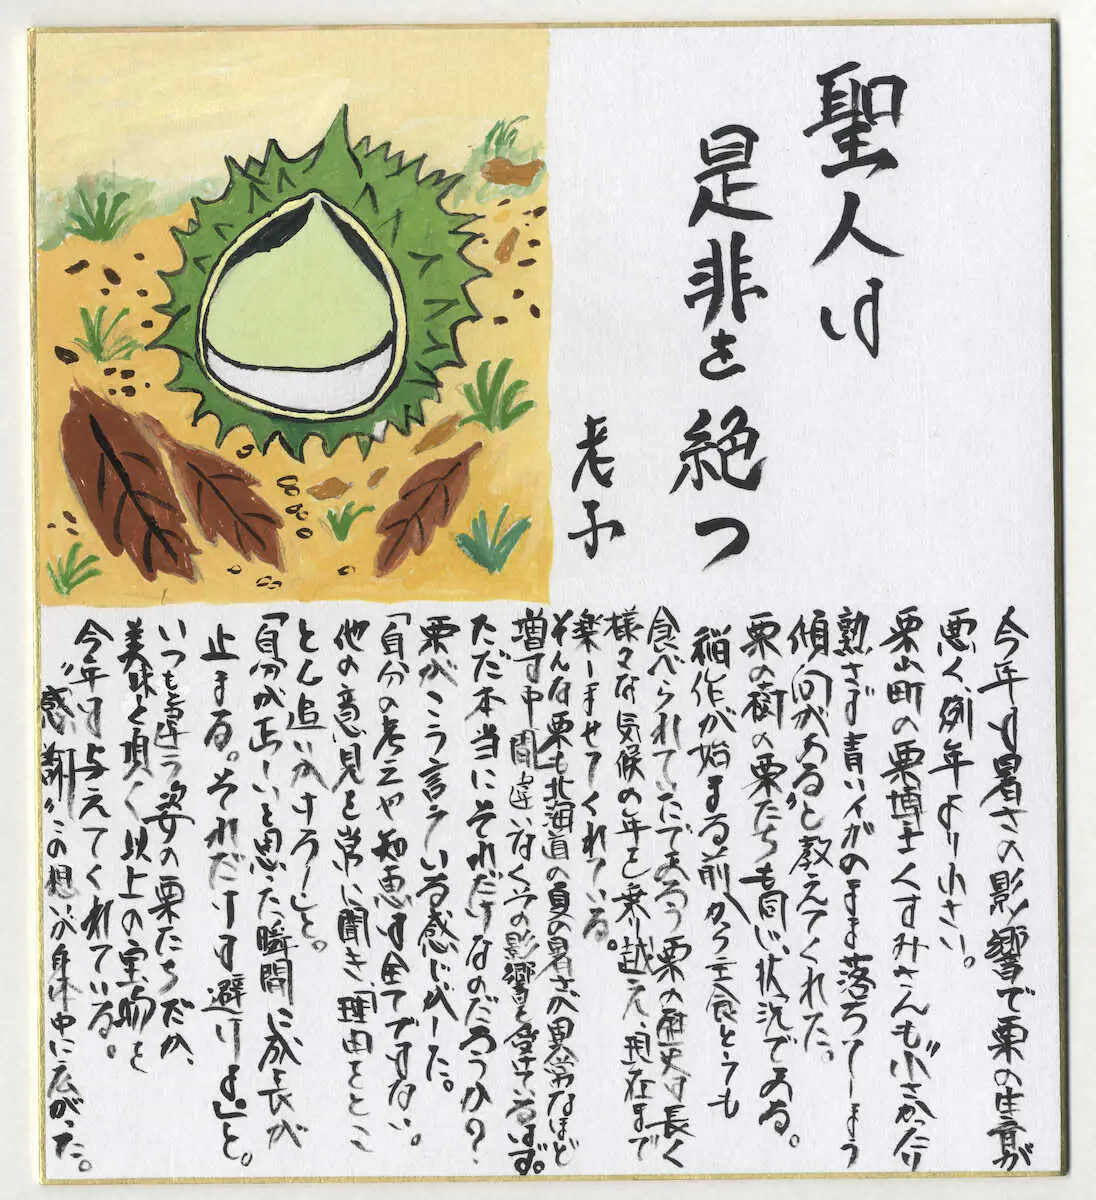 聖人は
是非を絶つ
老子
今年は暑さの影響で栗の生育が
悪く、例年より小さい。
栗山町の栗博士くすみさんも“小さかったり
熟さず青いイガのまま落ちてしまう
傾向がある”と教えてくれた。
栗の樹の栗たちも同じ状況である。
稲作が始まる前から主食としても
食べられていたであろう栗の歴史は長く
様々な気候の年を乗り越え、現在まで
楽しませてくれている。
そんな栗も北海道の夏の暑さが異常なほど
増す中間違いなくその影響を受けているはず。
ただ本当にそれだけなのだろうか？
栗がこう言っている感じがした。
「自分の考えや知恵は全てではない。
他の意見を常に聞き、理由をとこ
とん追いかけろ！」と。
「自分が正しいと思った瞬間に成長が
止まる。それだけは避けよ。」と。
いつもと違う姿の栗たちだが、
美味と頂く以上の宝物を
今年は与えてくれている。
“感謝”この想いが身体中に広がった。